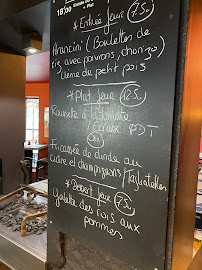 18,50
* Entrée Jour 7.5
Arancini (Boulettes de
riz avec poivrons, chorizo)
Crème de petit pois
* Plat Jour 12.5
à la tomate
Ecrasé PDT
Ou
Fricassée de dinde au
cidre et champignons / Tagliatelles
* Dessert Jour 7.5
Galette des rois aux
pommes